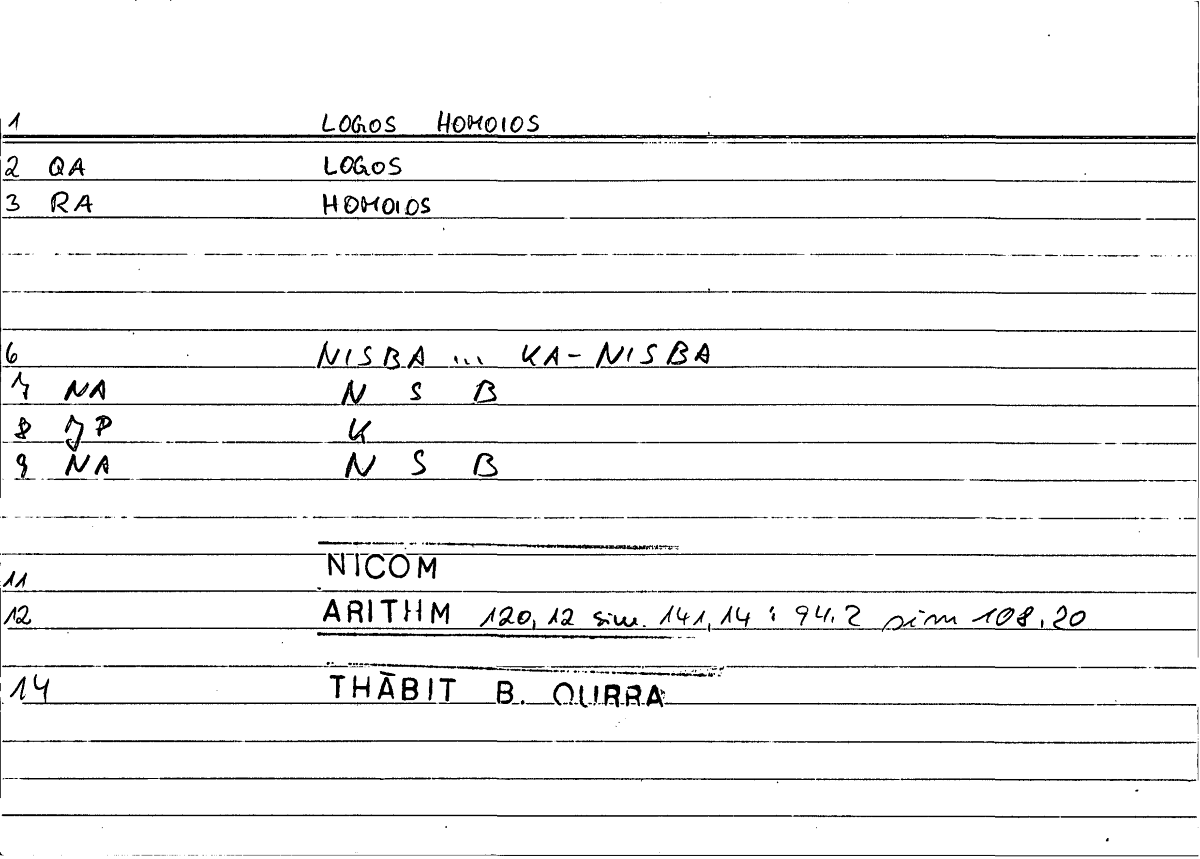 1 LOGOS HOMOIOS
2 QA LOGOS
3 RA HOMOIOS
6 NISBA ... KA-NISBA
7 NA N S B
8 JP K
9 NA N S B
11 NICOM
12 ARITHM 120,12 sim. 141,14 : 94.2 sim 108.20
14 THĀBIT B. QURRA